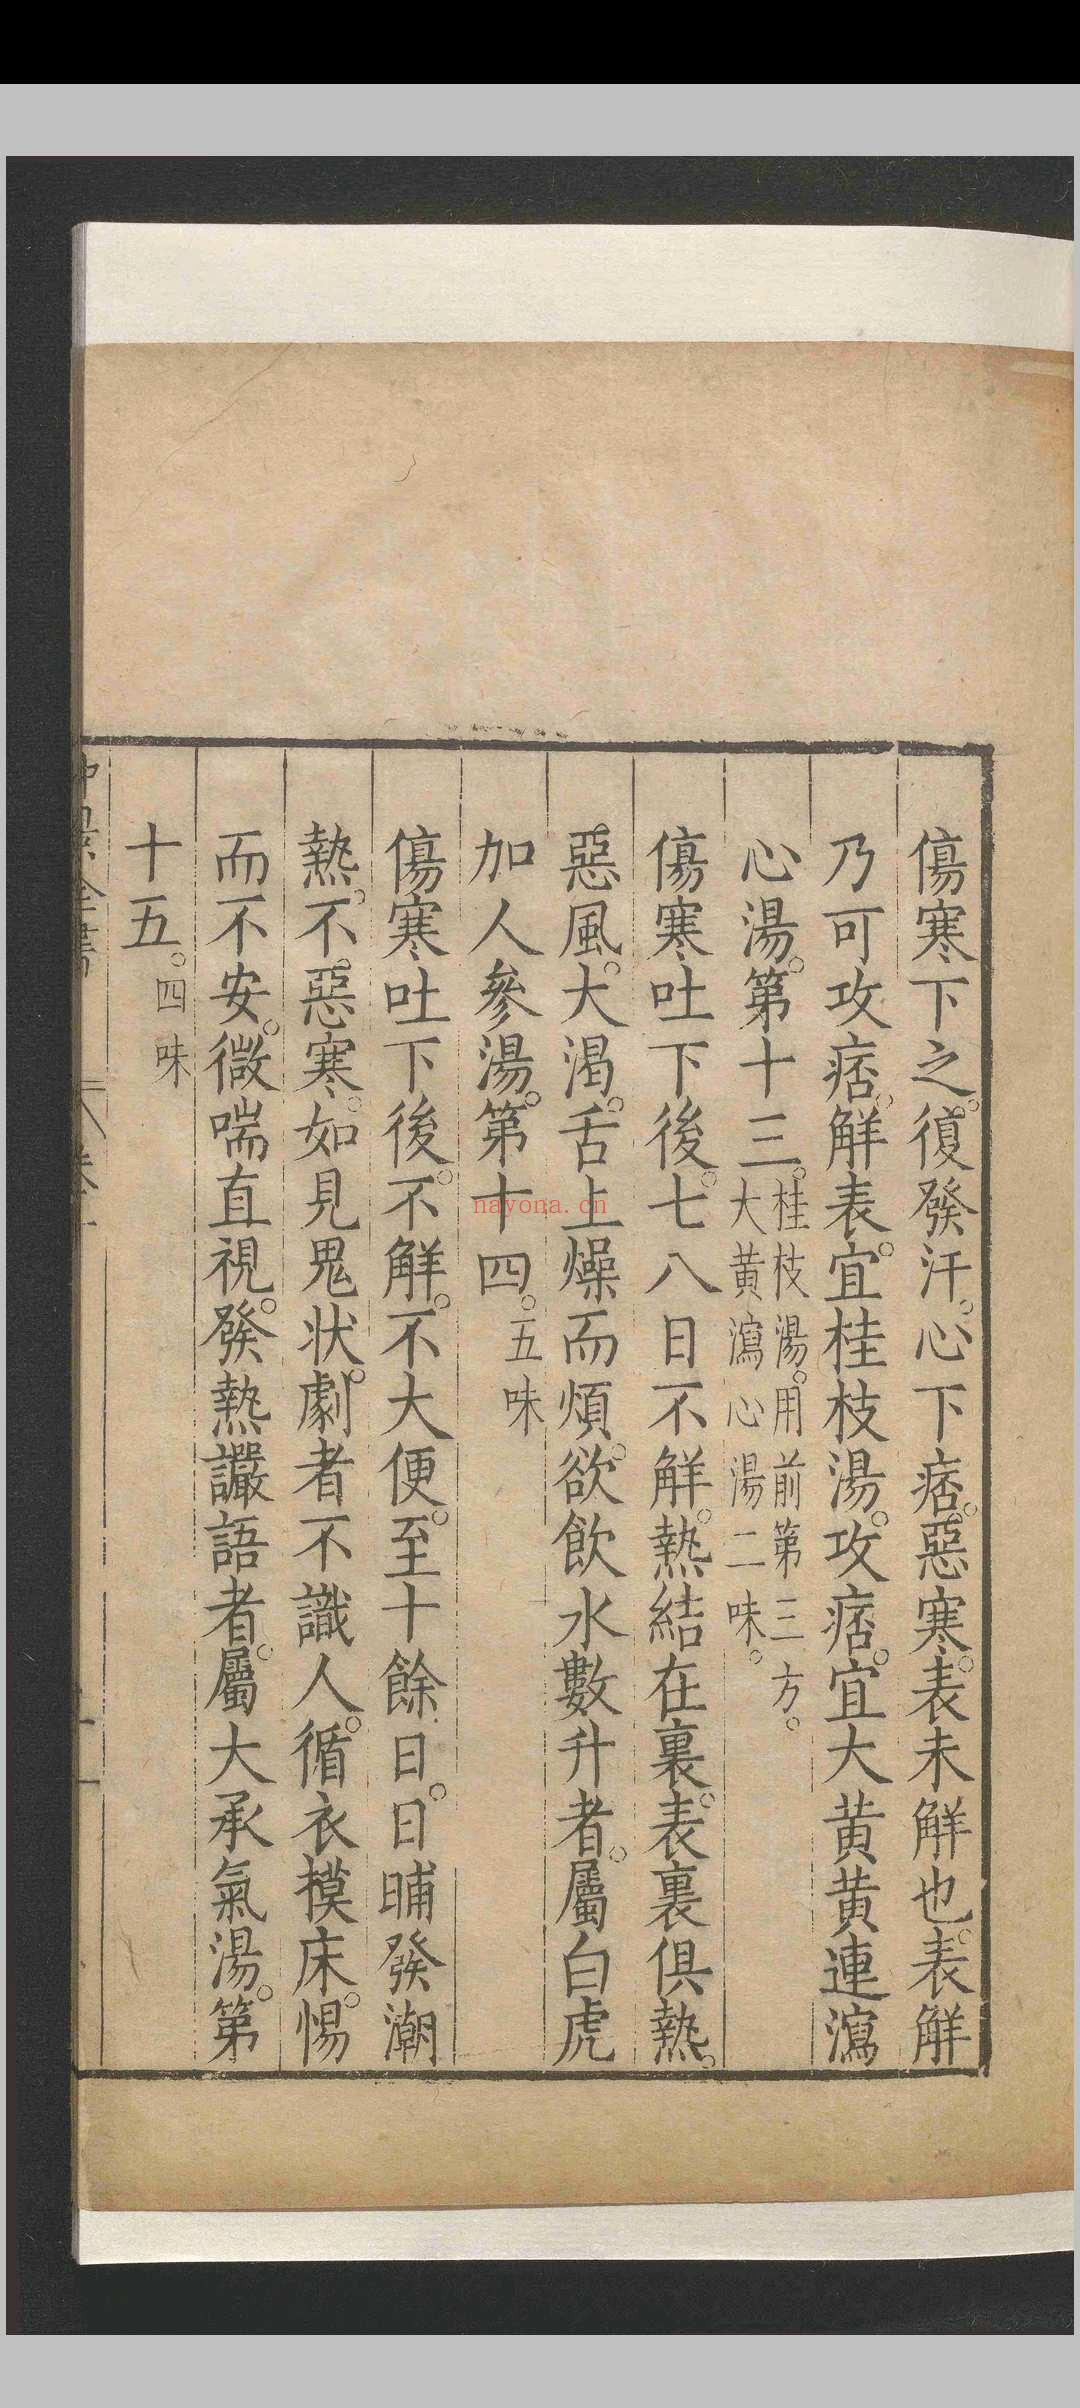 傷寒下之。復發汗。心下痞。惡寒。表未解也。表解
乃可攻痞。解表。宜桂枝湯。攻痞。宜大黃黃連瀉
心湯。第十三。桂枝湯。用前第三方。
大黃瀉心湯二味。
傷寒吐下後。七八日不解。熱結在裏。表裏俱熱。
惡風。大渴。舌上燥而煩。欲飲水數升者。屬白虎
加人參湯。第十四。五味
傷寒吐下後。不解。不大便。至十餘日。日晡發潮
熱。不惡寒。如見鬼狀。劇者不識人。循衣摸床。惕
而不安。微喘直視。發熱讝語者。屬大承氣湯。第
十五。四味
nayona.cn